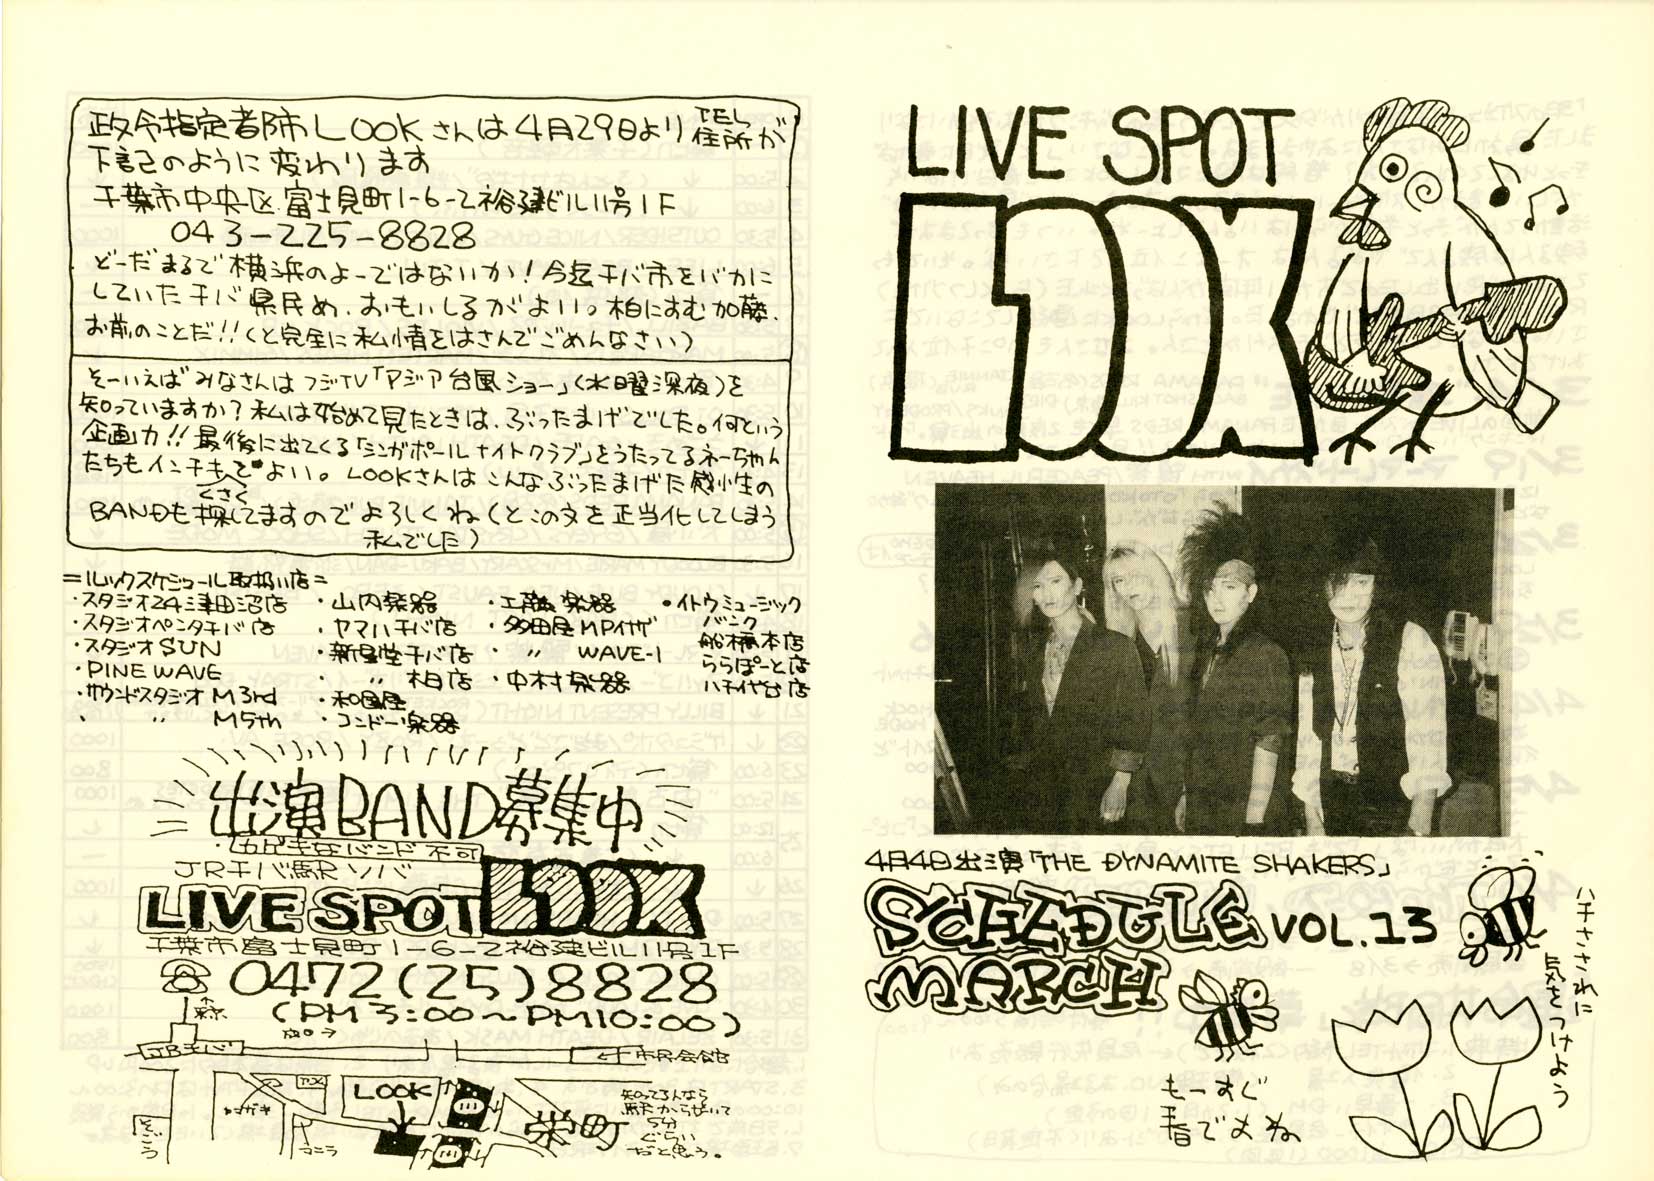 政令指定都市LOOKさんは4月29日よりTEL住所が
下記のように変わります
千葉市中央区富士見町1-6-2裕建ビル11号1F
043-225-8828
どーだまるで横浜のよーではないか!今迄千バ市をバカに
していた千バ県民め、おもいしるがよい。柏にすむ加藤、
お前のことだ!!(と完全に私情をはさんでごめんなさい)
そーいえばみなさんはフジTV「アジア台風ショー」(水曜深夜)を
知っていますか?私は始めて見たときは、ぶったまげでした。何という
企画力!!最後に出てくる「シンガポールナイトクラブ」とうたってるネーちゃん
たちもインチキくさくてよい。LOOKさんはこんなぶったまげた感性の
BANDも探してますのでよろしくね(とこの文を正当化してしまう
私でした)
=ルックスケジュール取扱い店=
・スタジオ24津田沼店
・スタジオペンタ千バ店
・スタジオSUN
・PINE WAVE
・サウンドスタジオ M3rd
・ 〃 M5th
・山内楽器
・ヤマハ千バ店
・新星堂千バ店
・ 〃 柏店
・和園屋
・コンドー楽器
・工藤楽器
・多田屋MPイザ
・ 〃 WAVE-1
・中村楽器
・イトウミュージック
バンク
船橋本店
ららぽーと店
八千代台店
出演BAND募集中
・カゲキなバンド不可
JR千バ駅ソバ
LIVE SPOT LOOK
千葉市富士見町1-6-2裕建ビル11号1F
0472(25)8828
(PM3:00〜PM10:00)
↑東京
JR千バ
←市民会館
LOOK
タマガキ
そごう
マニラ
栄町
知ってる人なら
駅から歩いて
5分
ぐらい
だと思う。
LIVE SPOT
LOOK
4月4日出演「THE DYNAMITE SHAKERS」
SCHEDULE VOL.13
MARCH
ハチにさされに
気をつけよう
もーすぐ
春ですよね